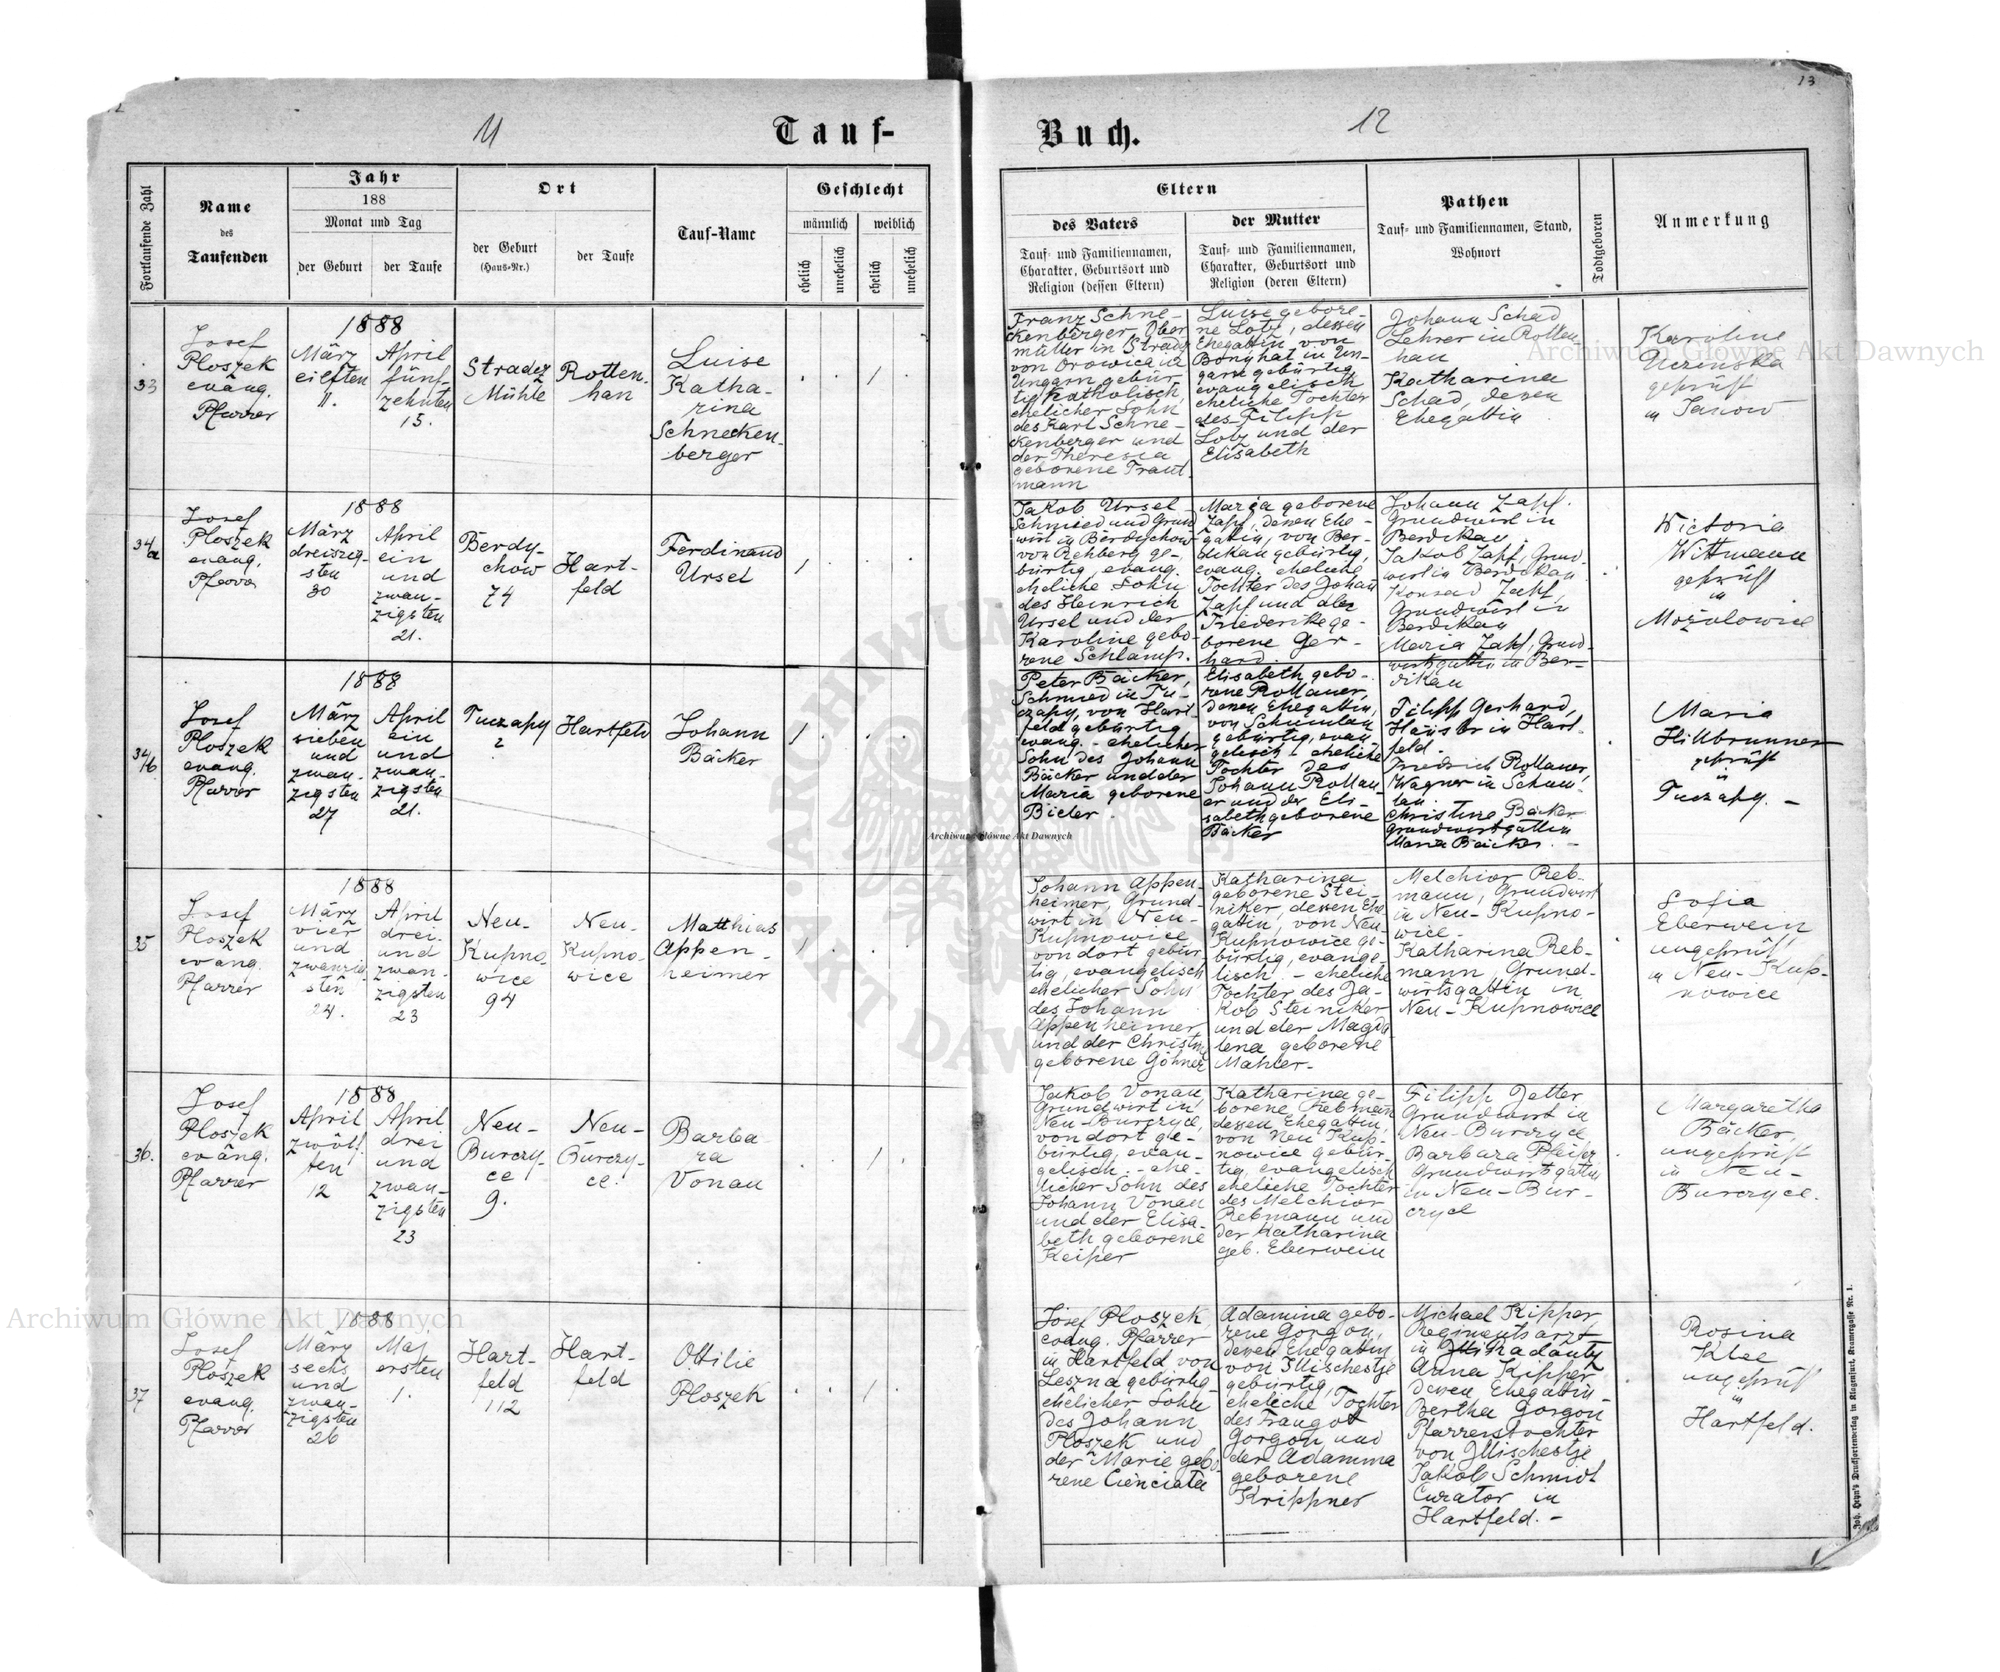 11
Tauf-
Buch.
12
13
Fortlaufende Zahl
Name
des
Taufenden
Jahr
188
Monat und Tag
der Geburt
der Taufe
Ort
der Geburt
(Haus-Nr.)
der Taufe
Tauf-Name
Geschlecht
männlich
weiblich
ehelich
unehelich
ehelich
unehelich
Eltern
des Vaters
Tauf- und Familiennamen,
Charakter, Geburtsort und
Religion (dessen Eltern)
der Mutter
Tauf- und Familiennamen,
Charakter, Geburtsort und
Religion (deren Eltern)
Pathen
Tauf- und Familiennamen, Stand,
Wohnort
Todtgeboren
Anmerkung
33
Josef
Ploszek
evang.
Pfarrer
1888
März
eilften
11.
April
fünf-
zehnten
15.
Stradez
Mühle
Rotten-
han
Luise
Katha-
rina
Schnecken-
berger
1
Franz Schne-
ckenberger, Ober
müller in Stradez
von Orowica in
Ungarn gebür-
tig katholisch,
ehelicher Sohn
des Karl Schne-
ckenberger und
der Theresia
geborene Traut-
mann
Luise gebore-
ne Lotz, dessen
Ehegattin von
Bonyhat in Un-
garn gebürtig,
evangelisch
eheliche Tochter
des Filipp
Lotz und der
Elisabeth
Johann Schad
Lehrer in Rotten
han
Katharina
Schad, deren
Ehegattin
Karoline
geprüft
in Janow
34/a
Josef
Ploszek
evang.
Pfarrer
1888
März
dreiszig-
sten
30
April
ein
und
zwan-
zigsten
21.
Berdy-
chow
74
Hart-
feld
Ferdinand
Ursel
1
Jakob Ursel
Schmied und Grund
wirt in Berdychow
von Rehberg ge-
bürtig, evang.
eheliche Sohn
des Heinrich
Ursel und der
Karoline gebo-
rene Schlamp.
Maria geborene
Zapf, denen Ehe-
gattin, von Ber-
dikau gebürtig,
evang. eheliche
Tochter des Johann
Zapf und der
Friederike ge-
borene Ger-
hard.
Johann Zapf.
Grundwirt in
Berdikau.
Jakob Zapf, Grund-
wirt in Berdikau
Konrad Zapf,
Grundwirt in
Berdikau
Maria Zapf, Grund-
wirtsgattin in Ber-
dikau
Wictoria
Wittmann
geprüft
in
34/b
Josef
Ploszek
evang.
Pfarrer
1888
März
sieben
und
zwan-
zigsten
27
April
ein
und
zwan-
zigsten
21.
Tuczapy
2
Hartfeld
Johann
Bäcker
1
Peter Bäcker,
Schmied in Tu-
czapy, von Hart-
feld gebürtig
evang. - ehelicher
Sohn des Johann
Bäcker und der
Maria geborene
Bieler.
Elisabeth gebo-
rene Rollauer,
denen Ehegattin,
von Schumlau
gebürtig, evan-
gelisch - eheliche
Tochter des
Johann Rollau-
er und der Eli-
sabeth geborene
Bäcker
Filipp Gerhard,
Häusler in Hart-
feld.
Friedrich Rollauer,
Wagner in Schum-
lau.
Christine Bäcker
Grundwirtsgattin
Maria Bäcker. -
Maria
Hillbrunner
geprüft
in
Tuczapy. -
35
Josef
Ploszek
evang.
Pfarrer
1888
März
vier
und
zwanzig-
sten
24.
April
drei
und
zwan-
zigsten
23
Neu-
Kupno-
wice
94
Neu-
Kupno-
wice
Matthias
Appen-
heimer
1
Johann Appen-
heimer, Grund-
wirt in Neu-
Kupnowice
von dort gebür-
tig, evangelisch
ehelicher Sohn
des Johann
Appenheimer
und der Christine
geborene Göhner
Katharina
geborene Stei-
niker, dessen Ehe
gattin, von Neu-
Kupnowice ge-
bürtig, evange-
lisch - eheliche
Tochter des Ja-
kob Steiniker
und der Magda
lena geborene
Mahler-
Melchior Reb-
mann, Grundwirt
in Neu-Kupno-
wice-
Katharina Reb-
mann, Grund-
wirtsgattin in
Neu-Kupnowice
Sofia
Eberwein,
ungeprüft
in Neu-Kup-
nowice
36.
Josef
Ploszek
evang.
Pfarrer
1888
April
zwölf-
ten
12
April
drei
und
zwan-
zigsten
23
Neu-
Burczy-
ce
9.
Neu-
Burczy-
ce.
Barba-
ra
Vonau
1
Jakob Vonau
Grundwirt in
Neu-Burczyce,
von dort ge-
bürtig, evan-
gelisch. - ehe-
licher Sohn des
Johann Vonau
und der Elisa-
beth geborene
Keiper
Katharina ge-
borene Rebmann
dessen Ehegattin,
von Neu Kup-
nowice gebür-
tig, evangelisch
eheliche Tochter
des Melchior
Rebmann und
der Katharina
geb. Eberwein
Filipp Jetter
Grundwirt in
Neu-Burczyce
Barbara
Grundwirtsgattin
in Neu-Bur-
czyce
Margaretha
Bäcker,
ungeprüft
in Neu-
Burczyce.
37
Josef
Ploszek
evang.
Pfarrer
1888
März
sechs
und
zwan-
zigsten
26
Mai
ersten
1.
Hart-
feld
112
Hart-
feld
Ottilie
Ploszek
1
Josef Ploszek,
evang. Pfarrer
in Hartfeld von
Leszna gebürtig
ehelicher Sohn
des Johann
Ploszek und
der Marie gebo-
rene Cienciala
Adamina gebo-
rene Gorgon,
deren Ehegattin
von Illischestje
gebürtig,
eheliche Tochter
des Traugott
Gorgon und
der Adamina
geborene
Krippner
Michael Kipper
Regimentsarzt
in Radautz
Anna Kipper
deren Ehegattin
Bertha Gorgon
Pfarrerstochter
von Illischestje
Jakob Schmidt
Curator in
Hartfeld. -
Rosina
Klee
ungeprüft
in
Hartfeld.
Joh. Heyn's Drucksortenverlag in Klagenfurt, Kramergasse Nr. 1.
Archiwum Główne Akt Dawnych
Archiwum Główne Akt Dawnych
Archiwum Główne Akt Dawnych